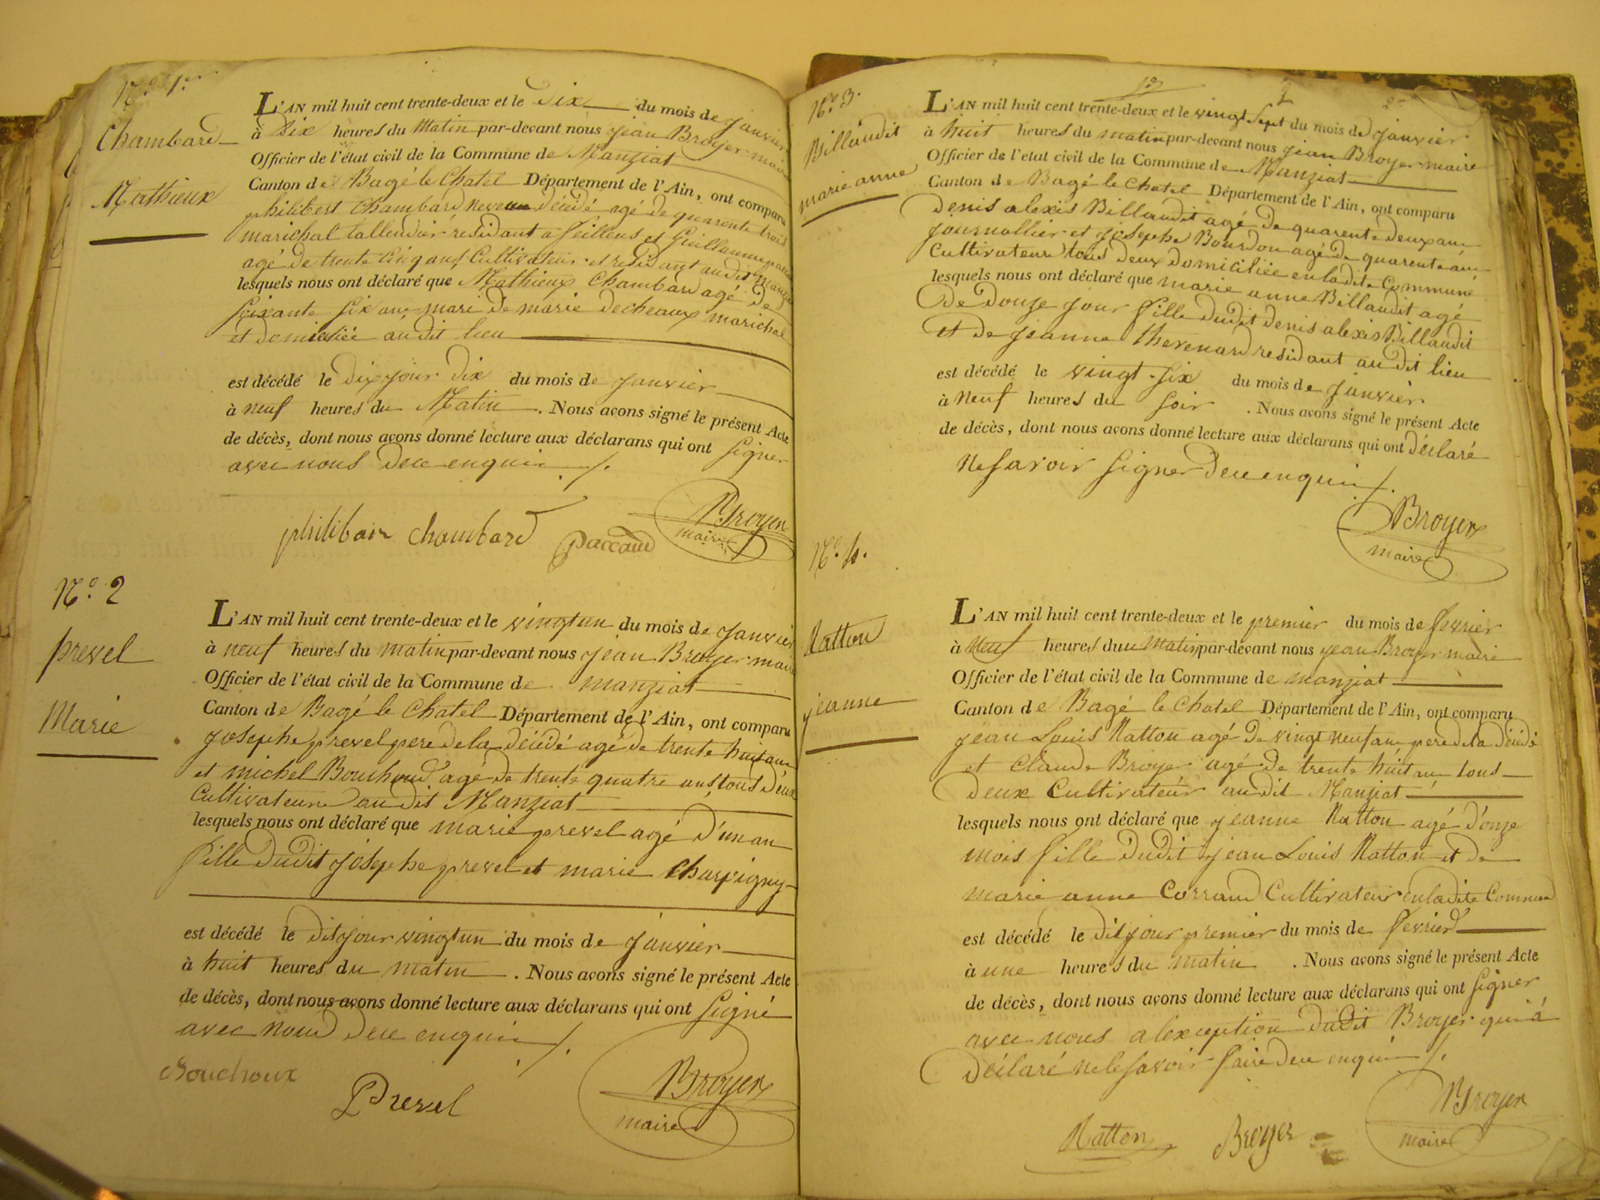 N.º 1.er
Chambard
Mathieux
L'AN mil huit cent trente-deux et le Dix du mois de janvier
à Dix heures du Matin par-devant nous jean Broyer maire
Officier de l'état civil de la Commune de Manziat
Canton de Bagé le Chatel Département de l'Ain, ont comparu
philibert Chambard neveu décédé agé de quarente trois
marichal tallendier résidant a feillens et Guillaume
agé de trente cinq ans Cultivateur et residant audit
lesquels nous ont déclaré que Mathieux Chambard agé de
soixante six ans mari de marie decheaux marichal
et domiciliée audit lieu
est décédé le dix jour dix du mois de janvier
à neuf heures du Matin . Nous avons signé le présent Acte
de décès, dont nous avons donné lecture aux déclarans qui ont signer
avec nous dece enquir ./.
philibair chambard Paccaud Broyer
maire
N.º 2
prevel
Marie
L'AN mil huit cent trente-deux et le vingtun du mois de janvier
à neuf heures du matin par-devant nous jean Broyer maire
Officier de l'état civil de la Commune de manziat
Canton de Bagé le Chatel Département de l'Ain, ont comparu
josephe prevel pere de la décédé agé de trente huit ans
et michel Bouchoud agé de trente quatre ans tous deux
Cultivateur audit Manziat
lesquels nous ont déclaré que marie prevel agé d'un an
fille dudit josephe prevel et marie Charvigny
est décédé le dit jour vingtun du mois de janvier
à huit heures du matin . Nous avons signé le présent Acte
de décès, dont nous avons donné lecture aux déclarans qui ont signé
avec nous dece enquir ./.
Bouchoux
Prevel
Broyer
maire
N.º 3.
Billaudit
marie anne
L'AN mil huit cent trente-deux et le vingt sept du mois de janvier
à huit heures du matin par-devant nous jean Broyer maire
Officier de l'état civil de la Commune de Manziat
Canton de Bagé le Chatel Département de l'Ain, ont comparu
denis alexis Billaudit agé de quarente deux ans
journallier et josephe Bourdon agé de quarente ans
Cultivateur tous deux domiciliée en ladite Commune
lesquels nous ont déclaré que marie anne Billaudit agé
de douze jour fille dudit denis alexis Billaudit
et de jeanne thevenard residant audit lieu
est décédé le vingt six du mois de janvier
à neuf heures du soir . Nous avons signé le présent Acte
de décès, dont nous avons donné lecture aux déclarans qui ont déclaré
ne savoir signer dece enquir ./.
Broyer
maire
N.º 4.
Natton
jeanne
L'AN mil huit cent trente-deux et le premier du mois de fevrier
à Neuf heures du Matin par-devant nous jean Broyer maire
Officier de l'état civil de la Commune de manziat
Canton de Bagé le Chatel Département de l'Ain, ont comparu
jean Louis Natton agé de vingt neuf ans pere de la décédé
et Claude Broyer agé de trente huit ans tous
deux Cultivateur audit Manziat
lesquels nous ont déclaré que jeanne Natton agé d'onze
mois fille dudit jean Louis Natton et de
marie anne Corrand Cultivateur en ladite Commune
est décédé le dit jour premier du mois de fevrier
à une heures du matin . Nous avons signé le présent Acte
de décès, dont nous avons donné lecture aux déclarans qui ont signer
avec nous a l'exception dudit Broyer qui a
déclaré ne le savoir faire dece enquir ./.
Natton Broyer Broyer
maire